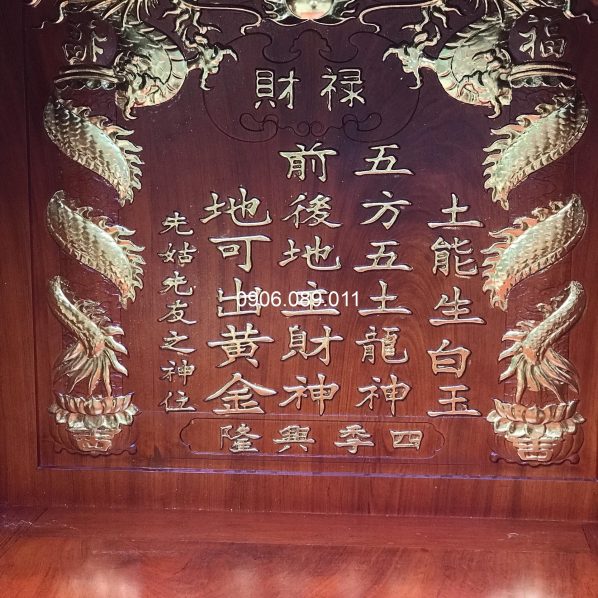 福
禄財
土能生白王
五方五土龍神
前後地主財神
地可出黃金
先姑先友之神位
四季興隆
0906.089.011